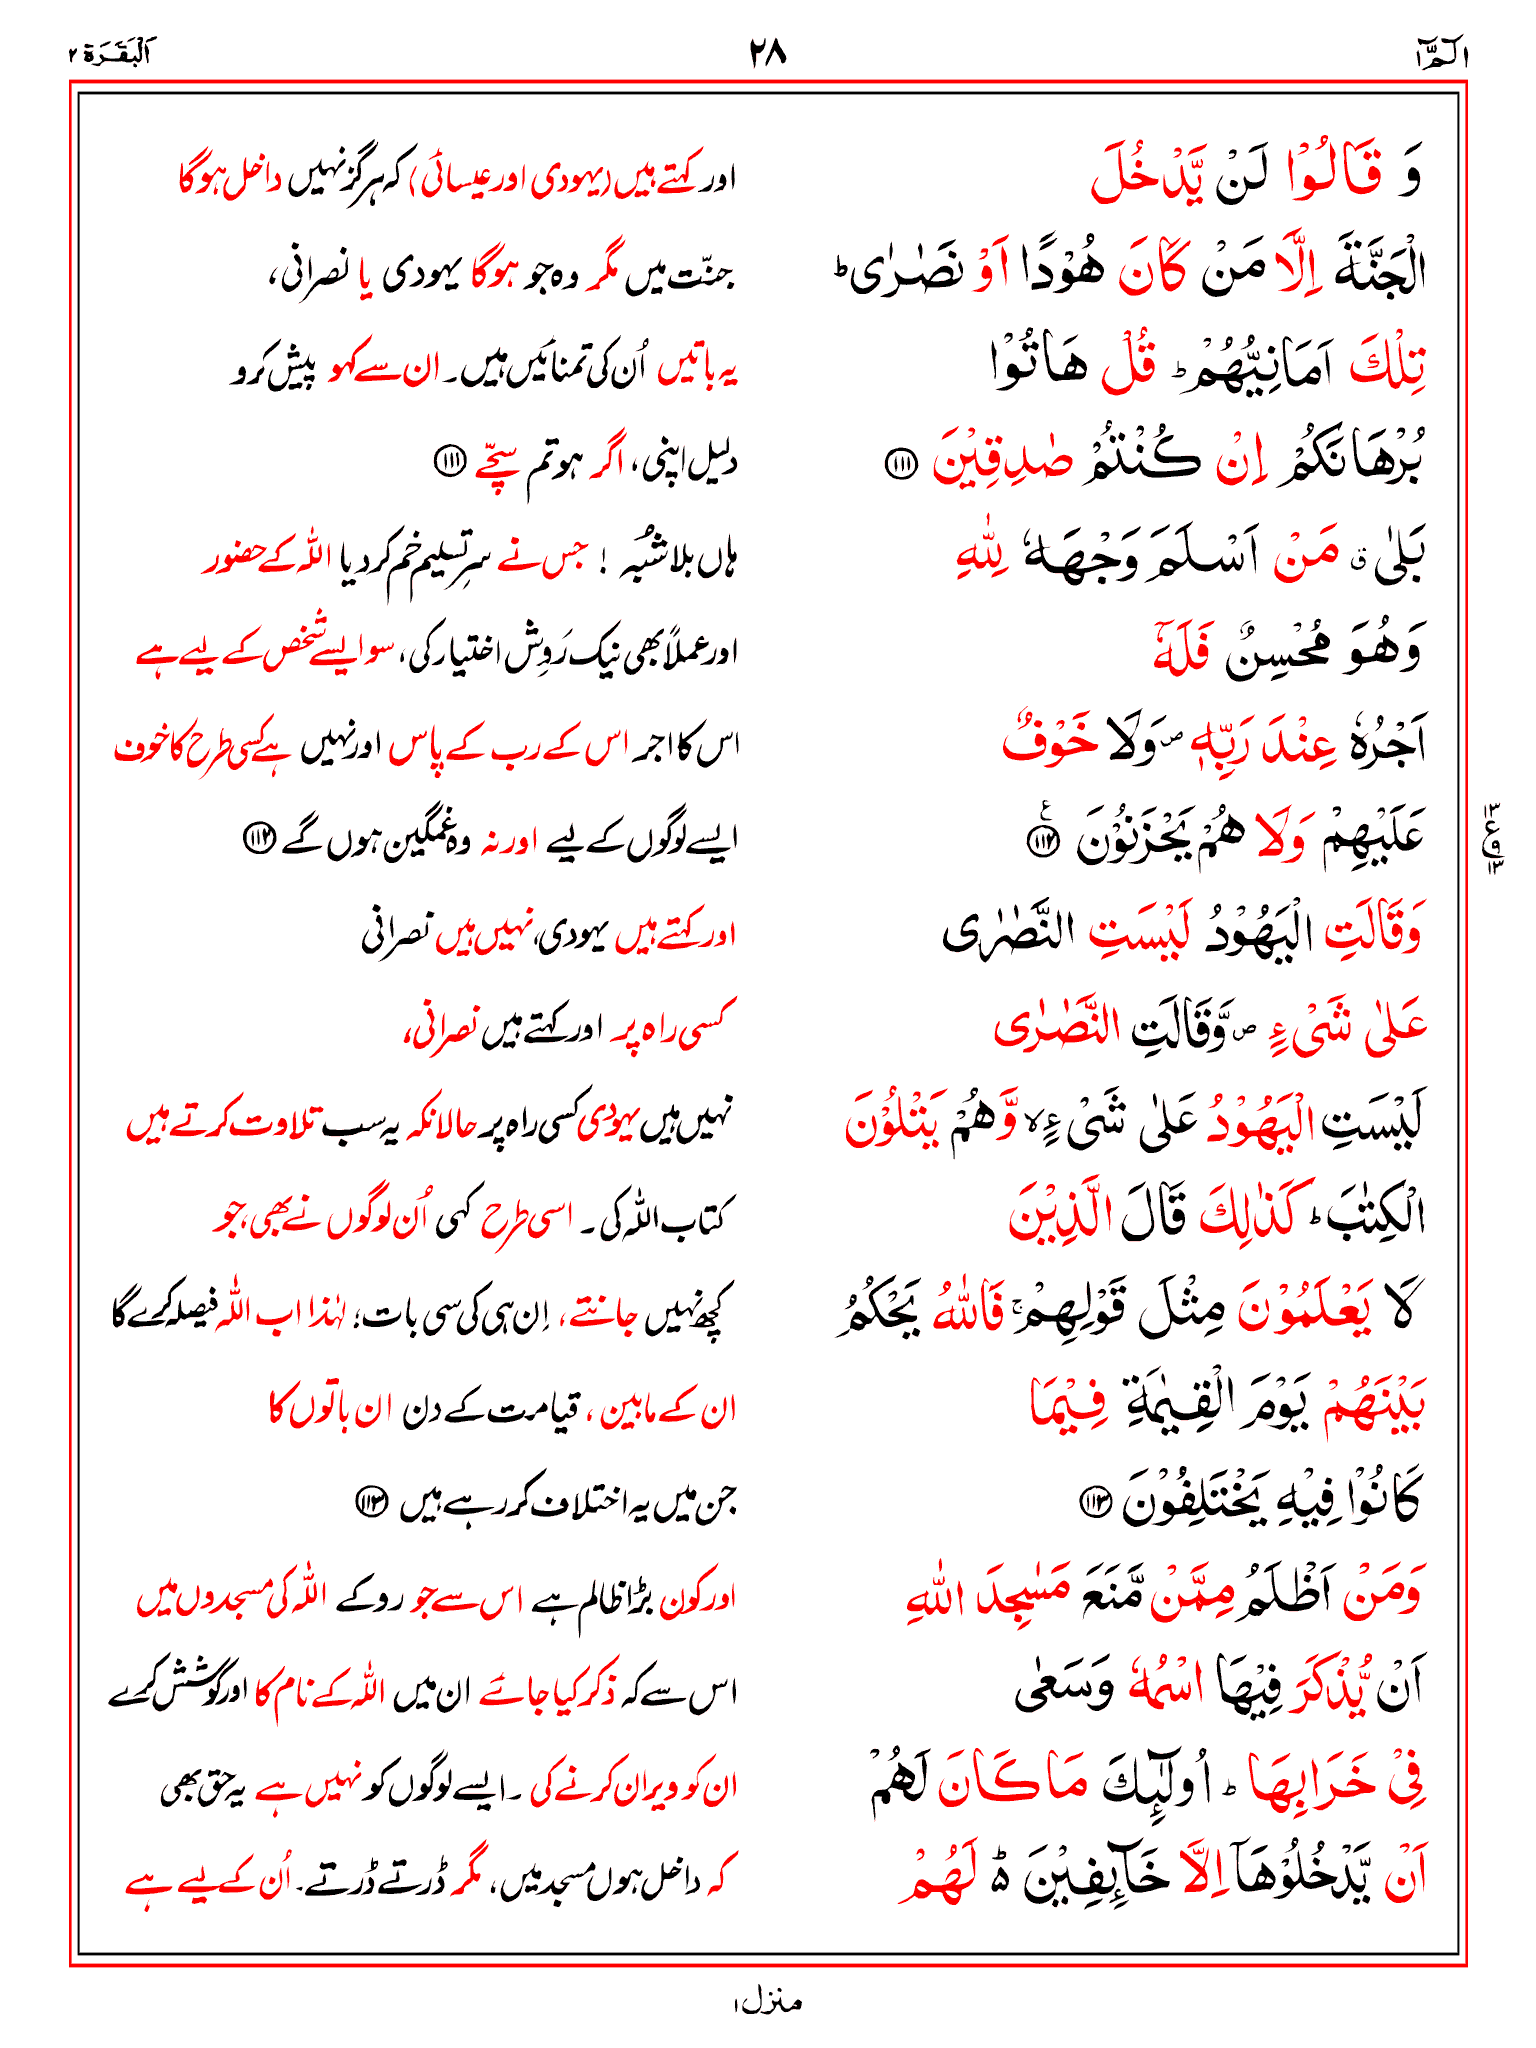 الٓمّٓ ۱
۲۸
اَلْبَقَرَة ۲
وَ قَالُوْا لَنْ یَّدْخُلَ
اور کہتے ہیں (یہودی اور عیسائی) کہ ہرگز نہیں داخل ہوگا
الْجَنَّةَ اِلَّا مَنْ كَانَ هُوْدًا اَوْ نَصٰرٰى ؕ
جنّت میں مگر وہ جو ہوگا یہودی یا نصرانی،
تِلْكَ اَمَانِیُّهُمْ ؕ قُلْ هَاتُوْا
یہ باتیں اُن کی تمنائیں ہیں۔ ان سے کہو پیش کرو
بُرْهَانَكُمْ اِنْ كُنْتُمْ صٰدِقِیْنَ ۝۱۱۱
دلیل اپنی، اگر ہو تم سچّے ۝۱۱۱
بَلٰى ۗ مَنْ اَسْلَمَ وَجْهَهٗ لِلّٰهِ
ہاں بلا شُبُہ ! جس نے سرِ تسلیم خم کر دیا اللہ کے حضور
وَهُوَ مُحْسِنٌ فَلَهٗۤ
اور عملاً بھی نیک رَوِش اختیار کی، سو ایسے شخص کے لیے ہے
اَجْرُهٗ عِنْدَ رَبِّهٖ ۪ وَلَا خَوْفٌ
اس کا اجر اس کے رب کے پاس اور نہیں ہے کسی طرح کا خوف
عَلَیْهِمْ وَلَا هُمْ یَحْزَنُوْنَ ۝۱۱۲ ع
ایسے لوگوں کے لیے اور نہ وہ غمگین ہوں گے ۝۱۱۲
۱۳
ع
۹
۱۳
وَقَالَتِ الْیَهُوْدُ لَیْسَتِ النَّصٰرٰى
اور کہتے ہیں یہودی، نہیں ہیں نصرانی
عَلٰى شَیْءٍ ۪ وَّقَالَتِ النَّصٰرٰى
کسی راہ پر اور کہتے ہیں نصرانی،
لَیْسَتِ الْیَهُوْدُ عَلٰى شَیْءٍ ۙ وَّهُمْ یَتْلُوْنَ
نہیں ہیں یہودی کسی راہ پر حالانکہ یہ سب تلاوت کرتے ہیں
الْكِتٰبَ ؕ كَذٰلِكَ قَالَ الَّذِیْنَ
کتاب اللہ کی۔ اسی طرح کہی اُن لوگوں نے بھی، جو
لَا یَعْلَمُوْنَ مِثْلَ قَوْلِهِمْ ۚ فَاللّٰهُ یَحْكُمُ
کچھ نہیں جانتے، اِن ہی کی سی بات؛ لہٰذا اب اللہ فیصلہ کرے گا
بَیْنَهُمْ یَوْمَ الْقِیٰمَةِ فِیْمَا
ان کے مابین، قیامت کے دن ان باتوں کا
كَانُوْا فِیْهِ یَخْتَلِفُوْنَ ۝۱۱۳
جن میں یہ اختلاف کر رہے ہیں ۝۱۱۳
وَمَنْ اَظْلَمُ مِمَّنْ مَّنَعَ مَسٰجِدَ اللّٰهِ
اور کون بڑا ظالم ہے اس سے جو روکے اللہ کی مسجدوں میں
اَنْ یُّذْكَرَ فِیْهَا اسْمُهٗ وَسَعٰى
اس سے کہ ذکر کیا جائے ان میں اللہ کے نام کا اور کوشش کرے
فِیْ خَرَابِهَا ؕ اُولٰٓئِكَ مَا كَانَ لَهُمْ
ان کو ویران کرنے کی۔ ایسے لوگوں کو نہیں ہے یہ حق بھی
اَنْ یَّدْخُلُوْهَاۤ اِلَّا خَآئِفِیْنَ ؕ۬ لَهُمْ
کہ داخل ہوں مسجد میں، مگر ڈرتے ڈرتے۔ اُن کے لیے ہے
منزل ۱